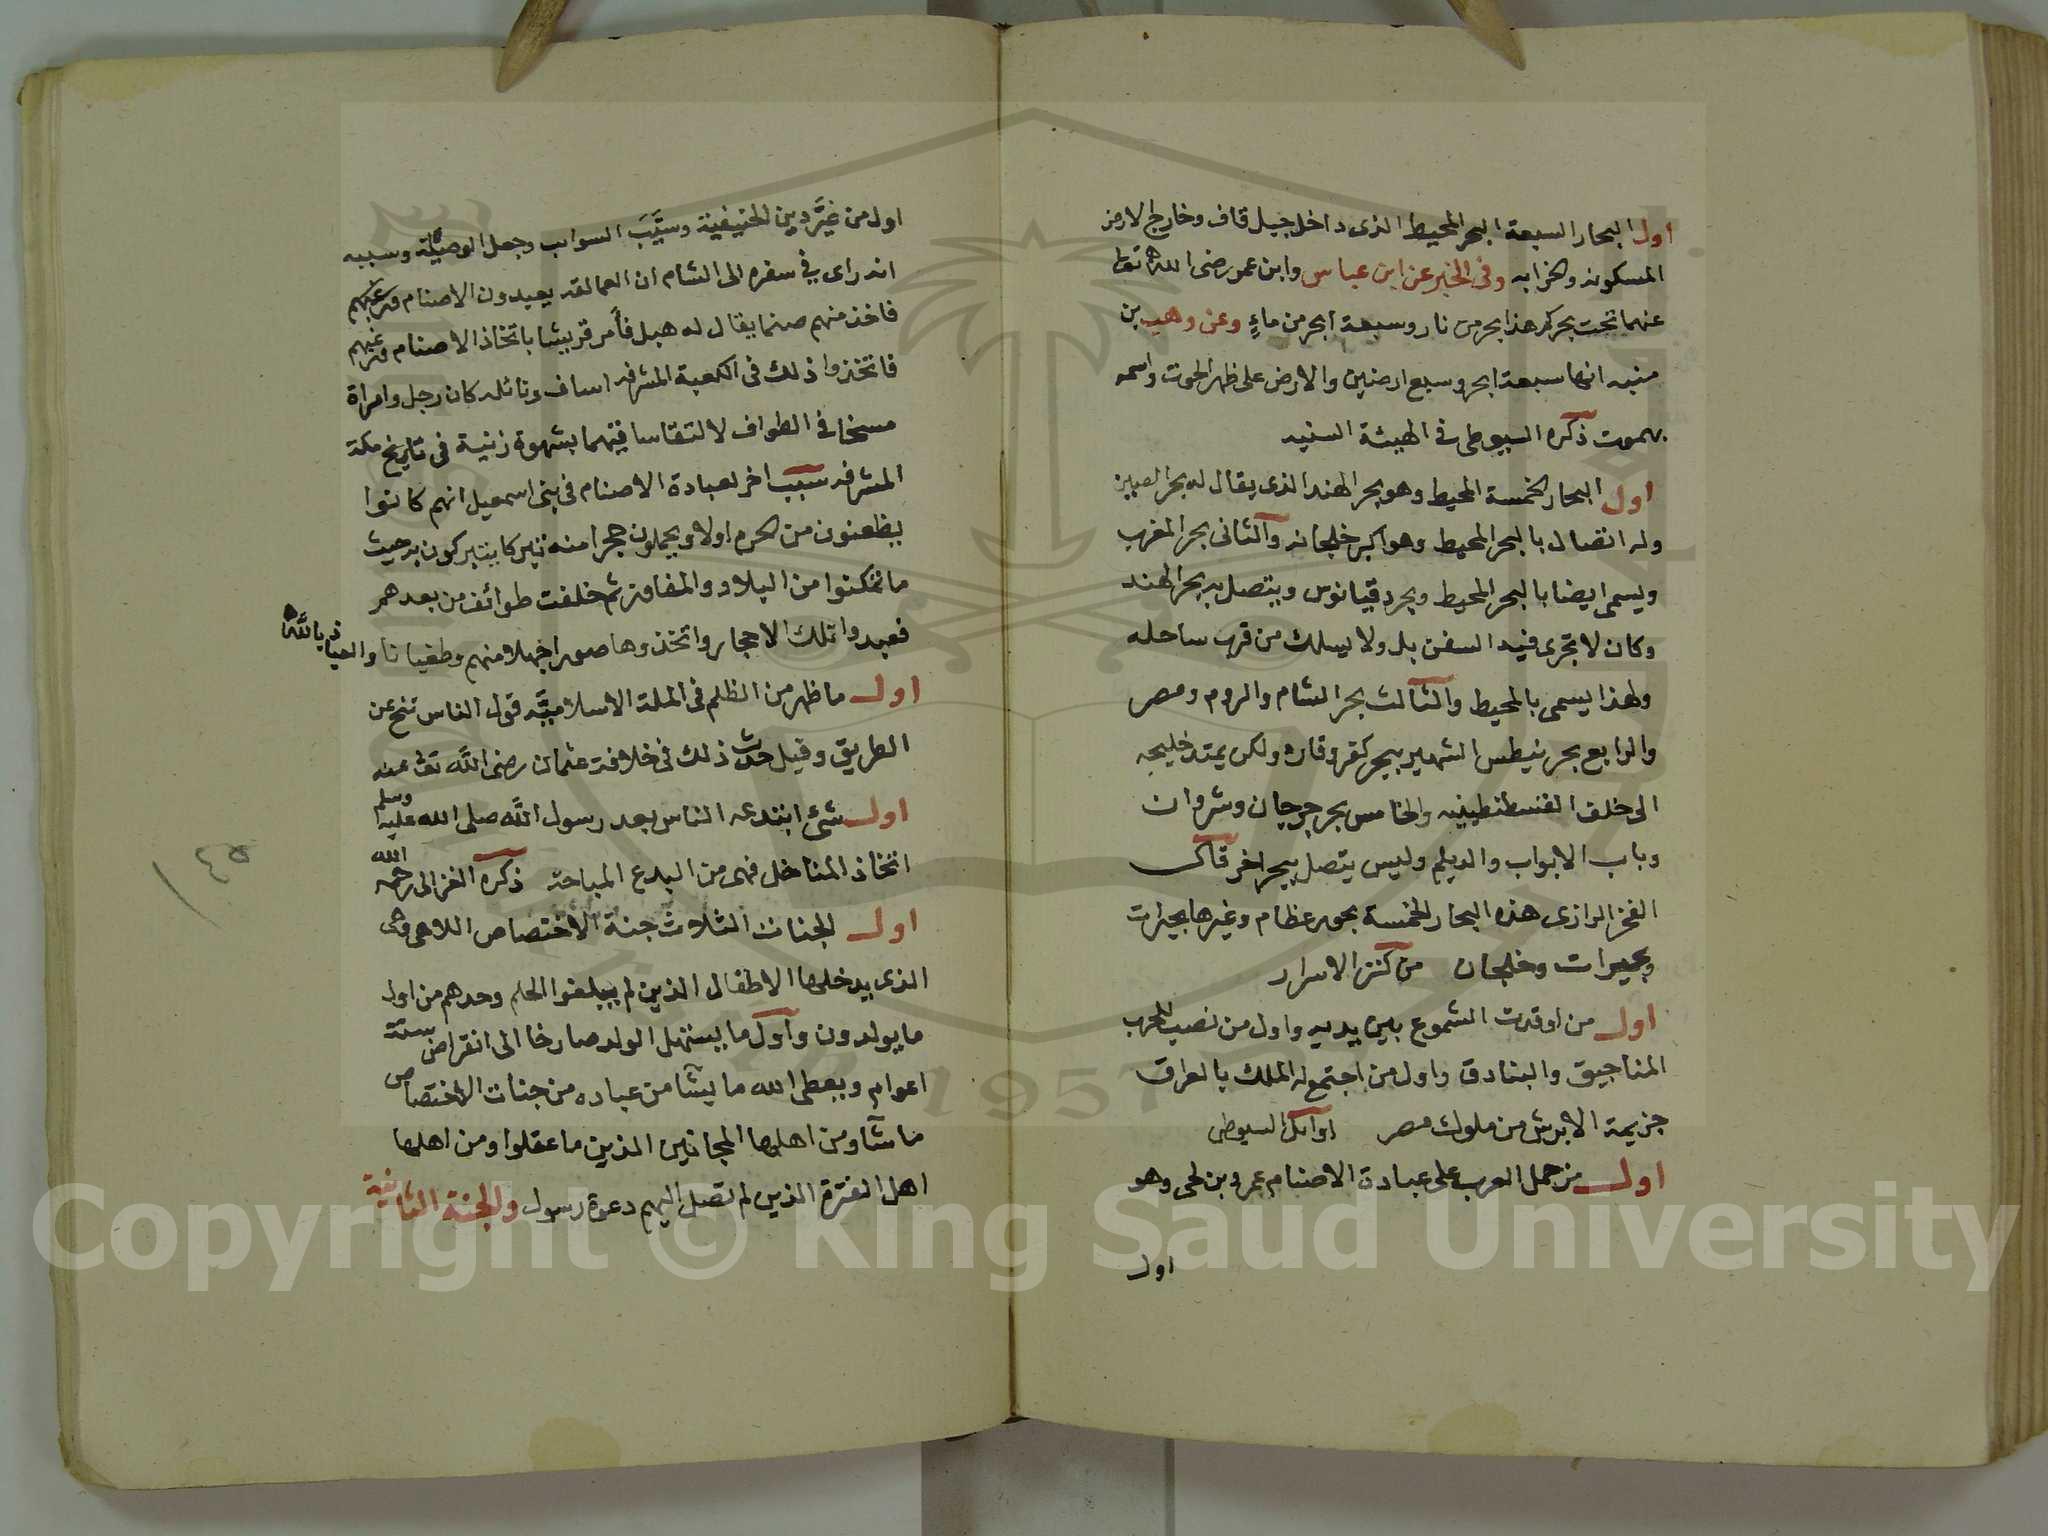 اول البحار السبعة البحر المحيط الذى داخل جبل قاف وخارج الارض
المسكونه والخرابه وفى الخبر عن ابن عباس وابن عمر رضى الله تعا
عنهما تحت بحركم هذا بحر من نار وسبعة ابحر من ماءٍ وعن وهب بن
منبه انها سبعة ابحر وسبع ارضين والارض على ظهر الحوت واسمه
بهموت ذكره السيوطى فى الهيئة السنيه
اول البحار الخمسة المحيط وهو بحر الهند الذى يقال له بحر الصين
وله اتصال بالبحر المحيط وهو اكبر خلجانه والثانى بحر المغرب
ويسمى ايضا بالبحر المحيط وبحر دقيانوس ويتصل به بحر الهند
وكان لا تجرى فيه السفن بل ولا يسلك من قرب ساحله
ولهذا يسمى بالمحيط والثالث بحر الشام والروم ومصر
والرابع بحر نيطس الشهير ببحر كفر وقاره ولكن يمتد خليجه
الى خلف القسطنطينيه والخامس بحر جرجان وشروان
وباب الابواب والديلم وليس يتصل ببحر اخر قال
الفخر الرازى هذه البحار الخمسة بحور عظام وغيرها بحيرات
وبحيرات وخلجان من كنز الاسرار
اول من اوقدت الشموع بين يديه واول من نصب للحرب
المناجيق والبنادق واول من اجتمع له الملك بالعراق
جزيمة الابرش من ملوك مصر اوائل السيوطى
اول من حمل العرب على عبادة الاصنام عمرو بن لحى وهو
اول
اول من غيَّر دين الحنيفية وسيَّبَ السوايب وجعل الوصيلة وسببه
انه راى فى سفره الى الشام ان العمالقه يعبدون الاصنام
فاخذ منهم صنما يقال له هبل فأمر قريشا باتخاذ الاصنام ورغبهم
فاتخذوا ذلك فى الكعبة المشرفه اساف ونائله كان رجل وامراة
مسخا فى الطواف لالتقاسا فيهما بشهوة زنية فى تاريخ مكة
المشرفه سبب اخر لعبادة الاصنام فى بنى اسمعيل انهم كانوا
يظعنون من الحرم اولا ويحملون حجرا منه تبركا يتبركون به حيث
ما تمكنوا من البلاد والمفاوز ثم خلفت طوائف من بعدهم
فعبدوا تلك الاحجار واتخذوها صورا جهلا منهم وطغيانا والعياذ بالله
اول ما ظهر من الظلم فى الملة الاسلاميَّه قول الناس تنح عن
الطريق وقيل حدث ذلك فى خلافة عثمان رضى الله تعا عنه
اول شئ ابتدعه الناس بعد رسول الله صلى الله عليه وسلم
اتخاذ المناخل فهى من البدع المباحة ذكره الغزالى رحمه الله
اول الجنات الثلاث جنة الاختصاص اللاهى وهى
الذى يدخلها الاطفال الذين لم يبلغوا الحلم وحدهم من اول
ما يولدون واول ما يستهل الولد صارخا الى انقراض ستة
اعوام ويعطى الله ما يشا من عباده من جنات الاختصاص
ما شآ ومن اهلها المجانين الذين ما عقلوا ومن اهلها
اهل الفترة الذين لم تصل اليهم دعوة رسول والجنة الثانية
١٤٥
1957
Copyright © King Saud University